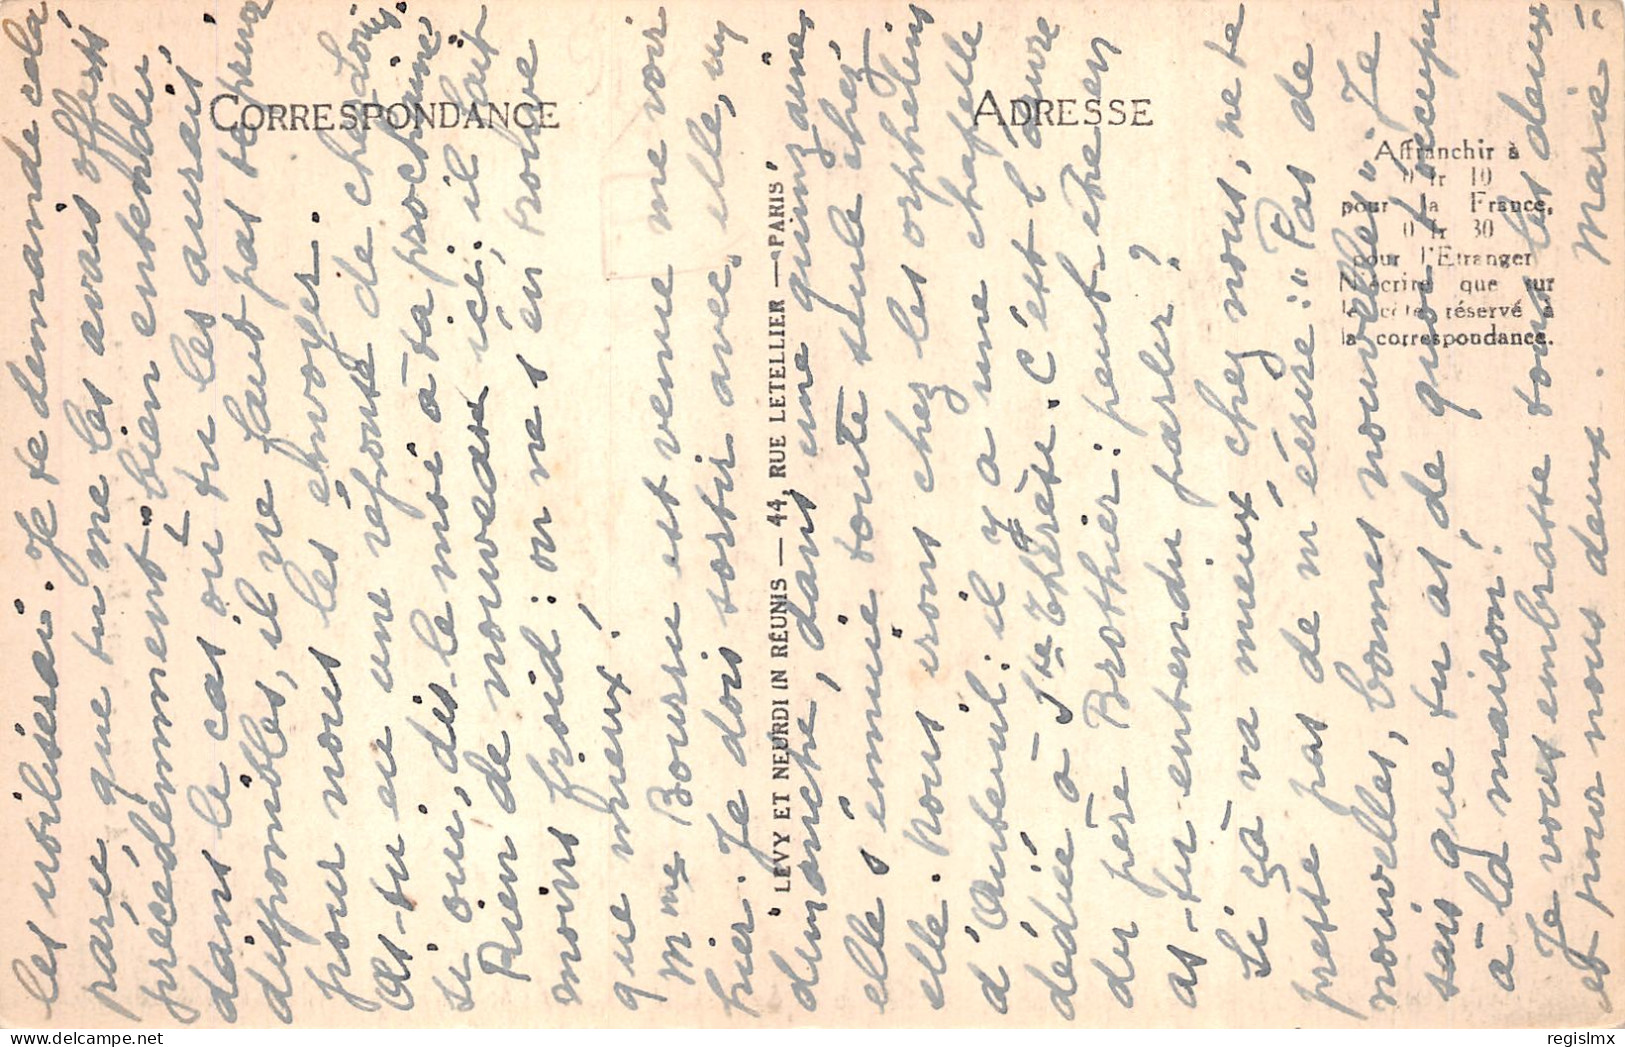 les utiliserai. Je te demande cela
parce que tu me les avais offerts
précédemment "bien entendu,
dans le cas où tu les aurais
disponibles, il ne faut pas te
pour nous les envoyer.
As-tu eu une réponse de chez Louis,
si oui, dis-le moi à ta prochaine.
Rien de nouveau ici; il fait
moins froid: on ne s'en trouve
que mieux!
Mme Boursu est venue me voir
hier. Je dois sortir avec elle, un
dimanche, dans une quinzaine,
elle s'ennuie toute seule chez
elle. Nous irons chez les orphelins
d'Auteuil: il y a une chapelle
dédiée à Ste Thérèse. C'est l'œuvre
du père Brothier: peut être en
as-tu entendu parler?
Si ça va mieux chez nous, ne te
presse pas de m'écrire: "Pas de
nouvelles, bonnes nouvelles". Je
sais que tu as de quoi t'occuper
à la maison!
Je vous embrasse tous les deux
et pour nous deux. Marie
CORRESPONDANCE
ADRESSE
Affranchir à
0 fr 10
pour la France,
0 fr 30
pour l'Etranger
N'écrire que sur
le côté réservé à
la correspondance.
LEVY ET NEURDI IN RÉUNIS — 44, RUE LETELLIER — PARIS
regislmx